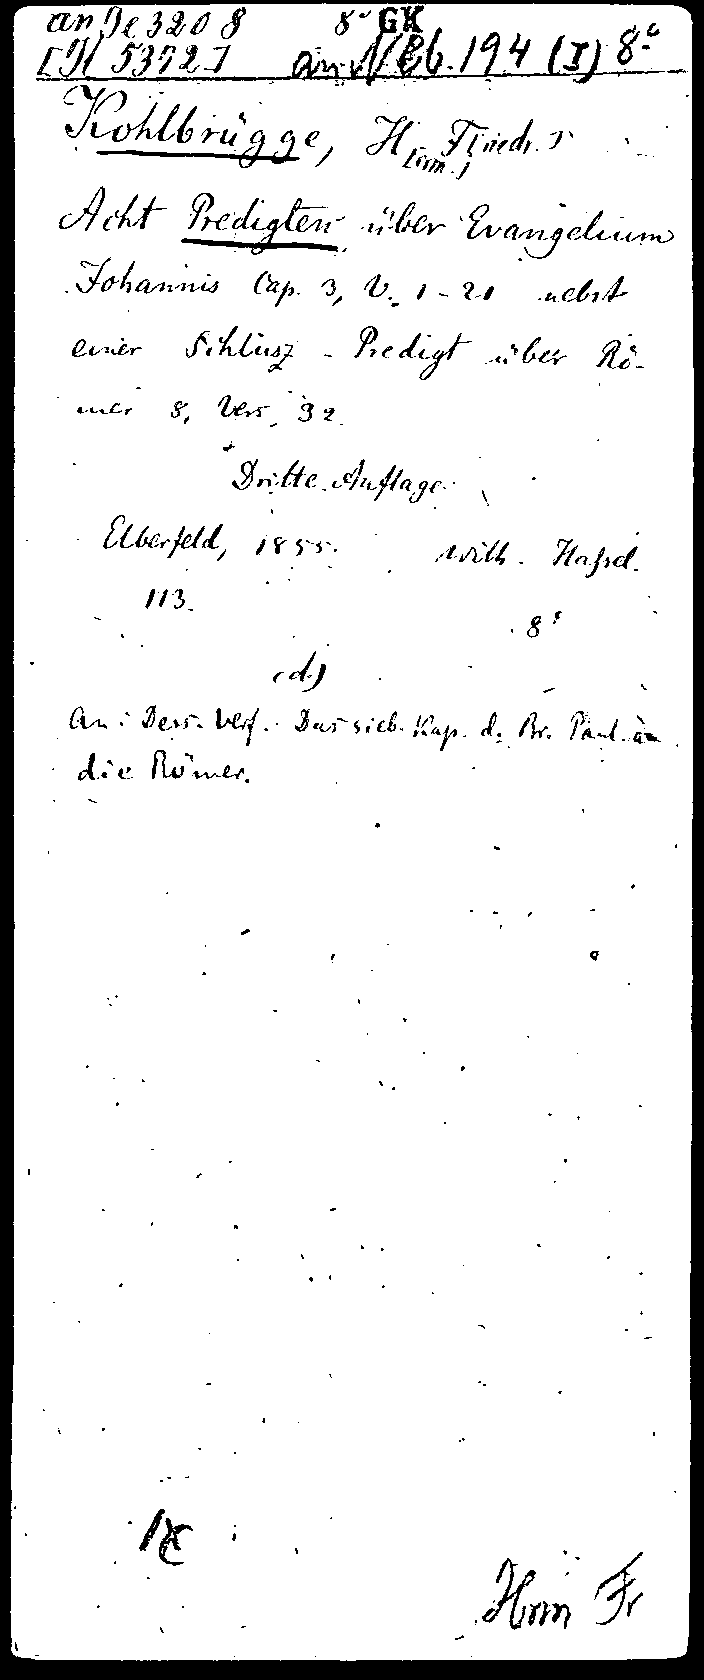 an De 3208 8° GK
[H 5372] an Neb. 194 (I) 8°
Kohlbrügge, H[erm.] F[riedr.]
Acht Predigten über Evangelium
Johannis Cap. 3, V. 1-21 nebst
einer Schlusz-Predigt über Rö-
mer 8, Vers 32.
Dritte Auflage.
Elberfeld, 1855. Wilh. Hassel.
113.
8°
(d)
An: Dess. Verf. Das sieb. Kap. d. Br. Paul. an
die Römer.
Hrm Fr